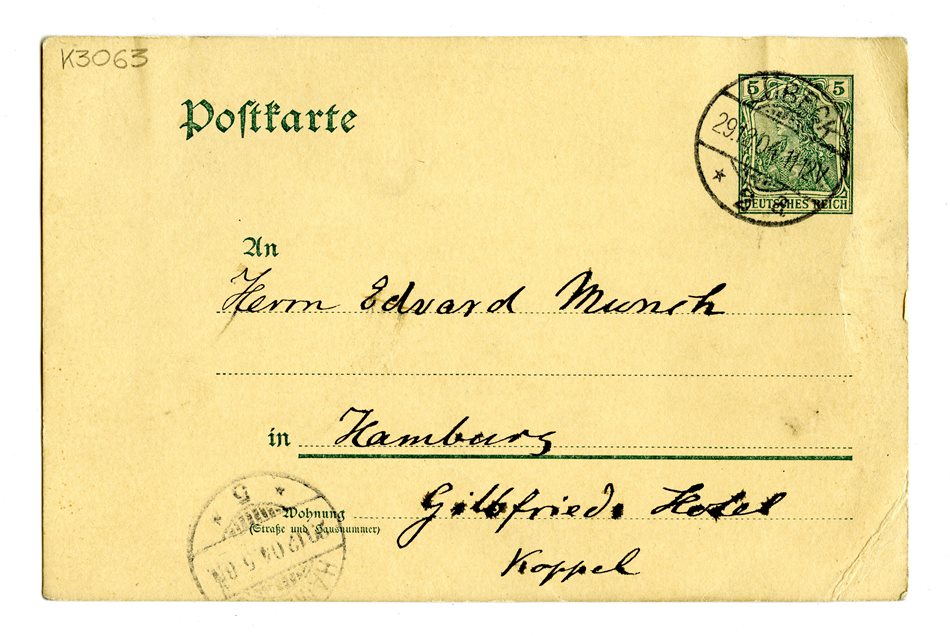 K3063
Postkarte
5 5
LÜBECK
29.12.04. 11-12V.
* 2 a.
DEUTSCHES REICH
An
Herrn Edvard Munch
in Hamburg
5
Wohnung
(Straße und Hausnummer)
12.04. 5-
HAM
Hotel
Koppel